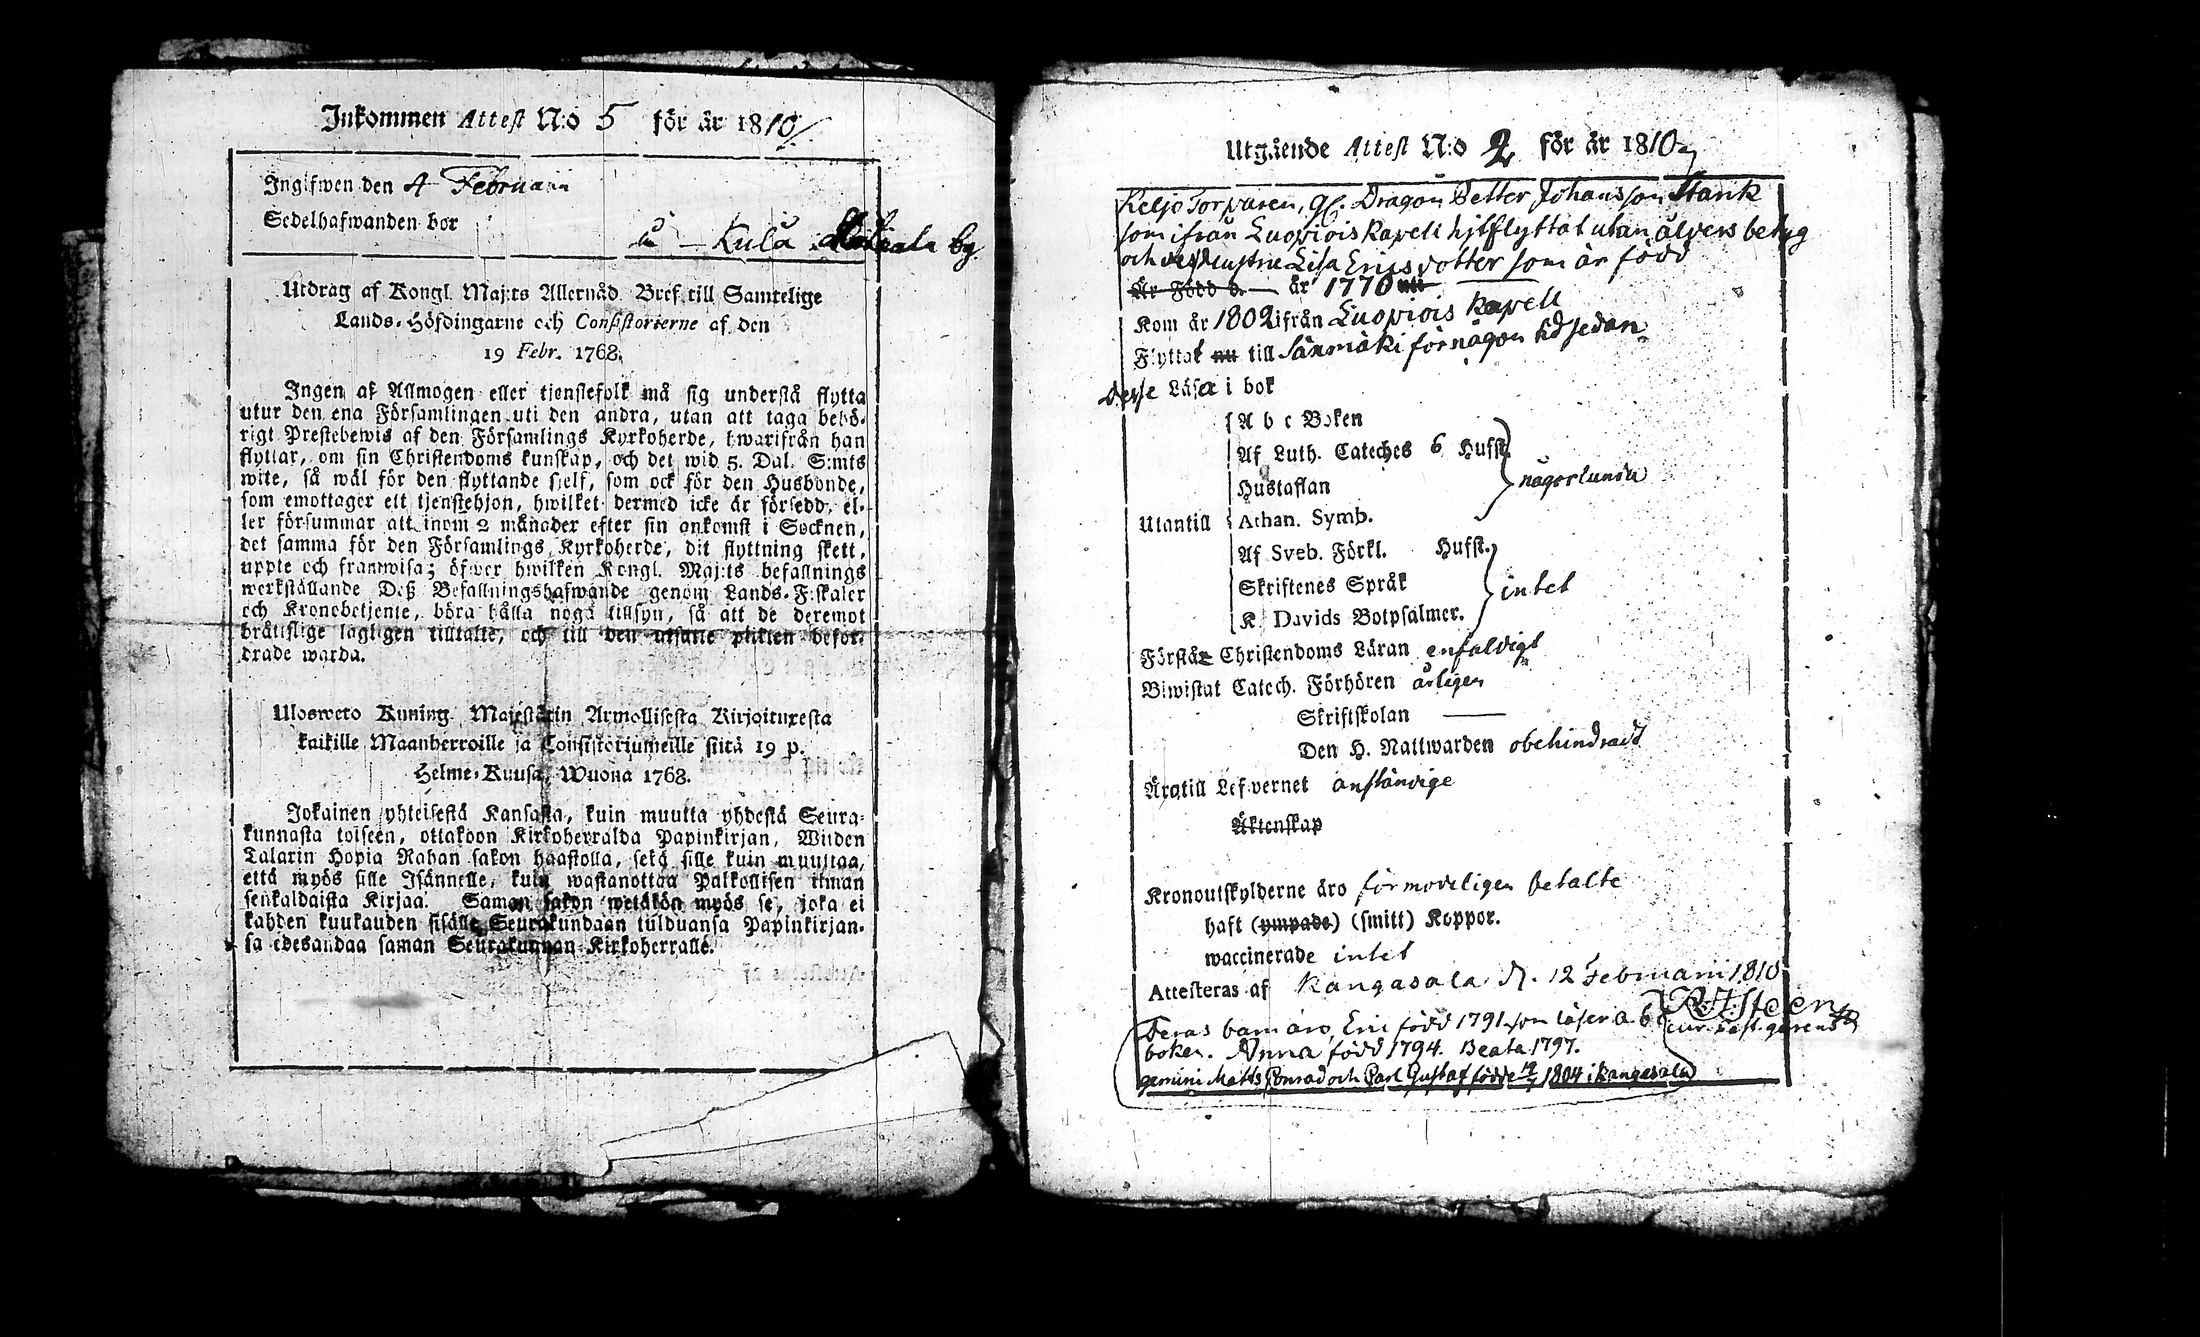 Inkommen Attest N:o 5 för år 1810
Ingifwen den 4 Februarii
Sedelhafwanden bor
Kula by
Utdrag af Kongl. Maj:ts Allernåd. Bref till Samtelige
Lands-Höfdingarne och Consistorierne af den
19 Febr. 1768.
Ingen af Allmogen eller tjenstefolk må sig understå flytta
utur den ena Församlingen uti den andra, utan att taga behö-
rigt Prestebewis af den Församlings Kyrkoherde, hwarifrån han
flyttar, om sin Christendoms kunskap, och det wid 5. Dal. S:mts
wite, så wäl för den flyttande sjelf, som ock för den Husbonde,
som emottager ett tjenstehjon, hwilket dermed icke är försedd, el-
ler försummar att inom 2 månader efter sin ankomst i Socknen,
det samma för den Församlings Kyrkoherde, dit flyttning skett,
uppte och framwisa; öfwer hwilken Kongl. Maj:ts befallnings
werkställande Deß Befallningshafwande genom Lands-Fiskaler
och Kronobetjente, böra hålla noga tillsyn, så att de deremot
bråttslige lagligen tilltalte, och till den utsatte plikten befor-
drade warda.
Ulosweto Kuning. Majestätin Armollisesta Kirjoituxesta
kaikille Maanherroille ja Consistoriumeille siitä 19 p.
Helme-Kuusa, Wuona 1768.
Jokainen yhteisestä Kansasta, kuin muutta yhdestä Seura-
kunnasta toiseen, ottakoon Kirkoherralda Papinkirjan, Wiiden
Talarin Hopia Rahan sakon haastolla, sekä sille kuin muuttaa,
että myös sille Isännelle, kuin wastanottaa Palkollisen ilman
senkaldaista Kirjaa. Saman sakon wetäkön myös se, joka ei
kahden kuukauden sisälle Seurakundaan tulduansa Papinkirjan-
sa edesandaa saman Seurakunnan Kirkoherralle.
Utgående Attest N:o 2 för år 1810
Keljo Torparen, gl. Dragon Petter Johansson Stank
som ifrån Luopiois Kapell hitflyttat utan betyg
och dess hustru Lisa Ericsdotter som är född
Är Född d. — år 1770 uti
Kom år 1802 ifrån Luopiois Kapell
Flyttat nu till för någon tid sedan
Desse Läsa i bok
A b c Boken
Af Luth. Cateches 6 Hufst.
Hustaflan
någorlunda
Utantill Athan. Symb.
Af Sveb. Förkl. Hufst.
Skriftenes Språk intet
K. Davids Botpsalmer.
Förstår Christendoms Läran enfaldigt
Biwistat Catech. Förhören årligen
Skriftskolan —
Den H. Nattwarden obehindradt
Äro till Lefwernet anständige
Äktenskap
Kronoutskylderne äro förmodeligen betalte
haft (ympade) (smitt) Koppor.
waccinerade intet
Attesteras af Kangasala d. 12 Februarii 1810
Deras barn äro, Eric född 1791 som läser a b c
boken. Anna född 1794. Beata 1797.
gemini Matts Conrad och Carl Gustaf födde 1804 i Kangasala